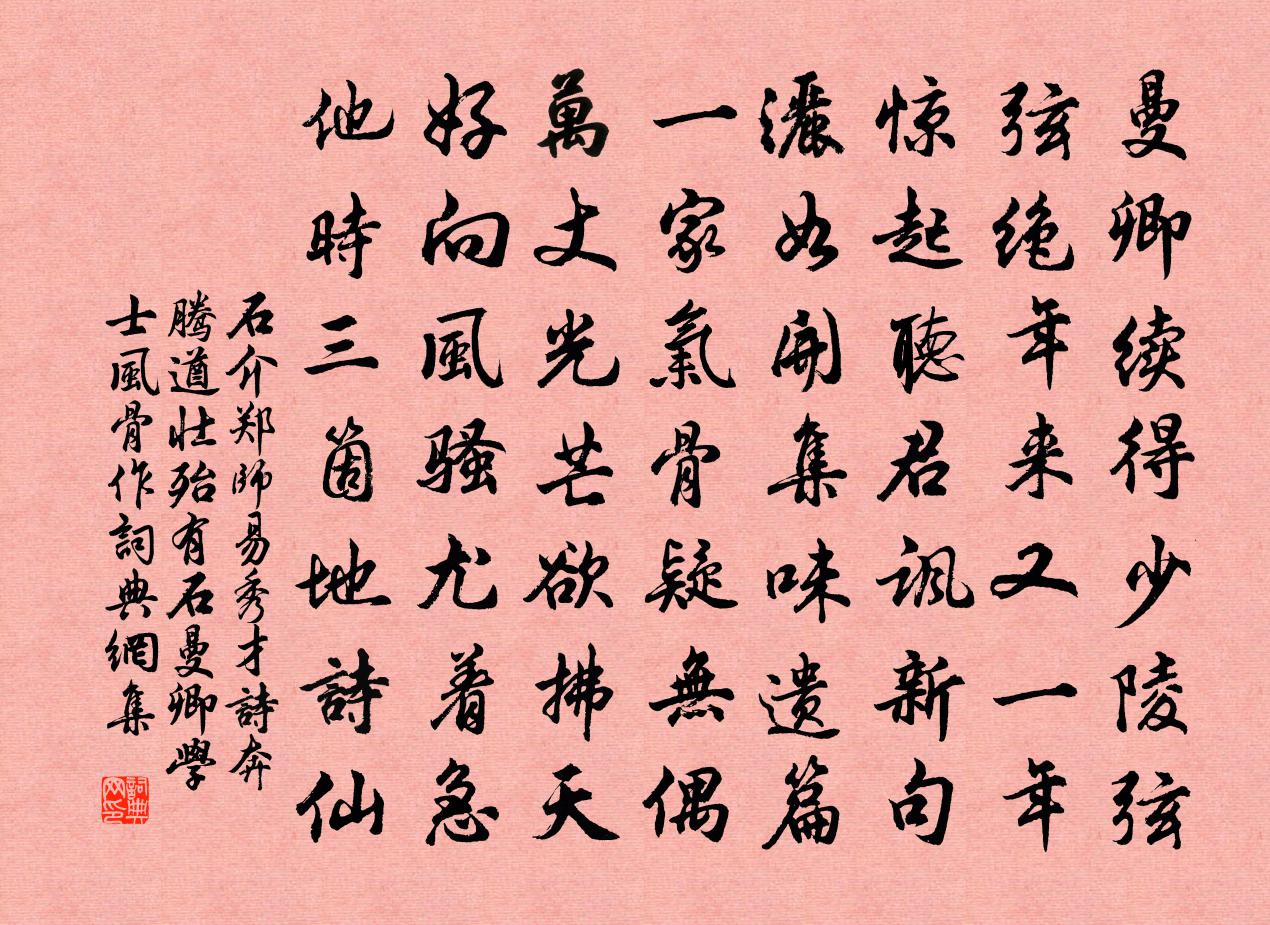 曼卿续得少陵弦
弦绝年来又一年
惊起聽君讽新句
灑如開集味遗篇
一家氣骨疑無偶
萬丈光芒欲拂天
好向風骚尤着急
他時三箇地詩仙
石介郑師易秀才詩奔
騰遒壮殆有石曼卿學
士風骨作詞典網集
詞典
网印